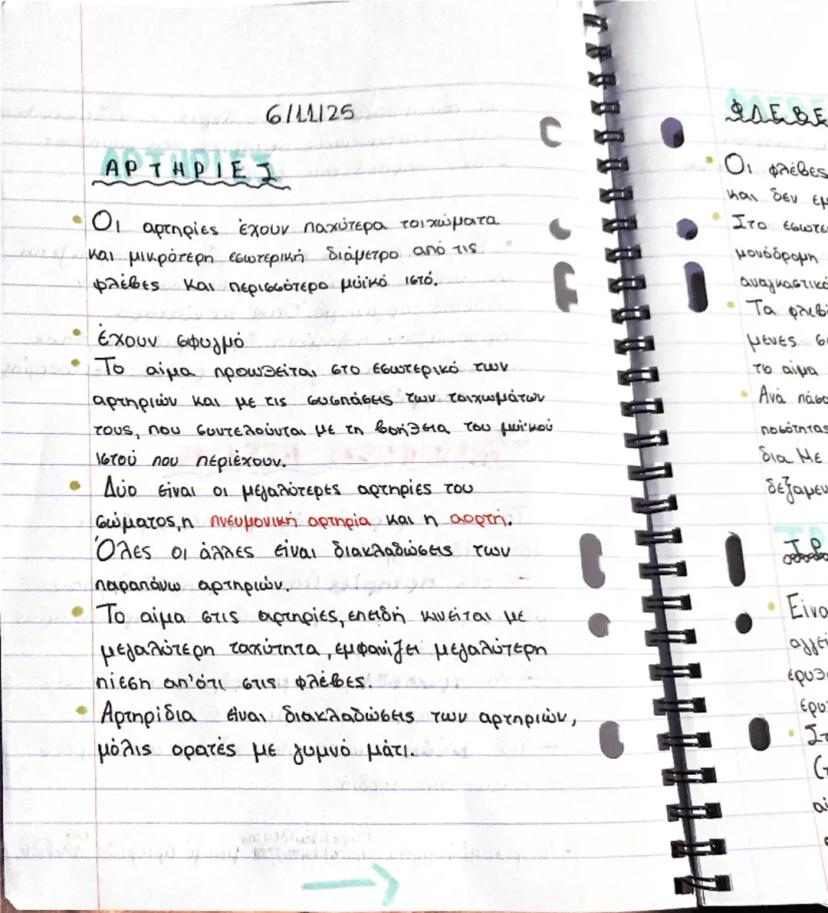 6/11/25
ΑΡΤΗΡΙΕΣ
Οι αρτηρίες έχουν παχύτερα τοιχώματα
και μικρότερη εσωτερική διάμετρο από τις
φλέβες και περισσότερο μϋϊκό ιστό.
έχουν σφυγμό
Το αίμα προωθείται στο εσωτερικό των
αρτηριών και με τις συσπάσεις των τοιχωμάτων
τους, που συντελούνται με τη βοήθεια του μυϊκού
ιστού που περιέχουν.
Δύο είναι οι μεγαλύτερες αρτηρίες του
σώματος,η πνευμονική αρτηρία και η αορτή.
Όλες οι άλλες είναι διακλαδώσεις των
παραπάνω αρτηριών.
Το αίμα στις αρτηρίες,επειδή κινείται με
μεγαλύτερη ταχύτητα,εμφανίζει μεγαλύτερη
πίεση απ'ότι στις φλέβες.
Αρτηρίδια είναι διακλαδώσεις των αρτηριών,
μόλις ορατές με γυμνό μάτι.
ΦΛΕΒΕ
Οι φλέβες
και δεν εμ
Στο εσωτε
μονόδρομη
αναγκαστικά
Τα φλεβί
μενες σ
το αίμα
Ανά πάσα
ποσότητας
δια Με
δεξαμεν
Είνα
αγγεί
ερυθ
ερυ
Στ
(τ
αί